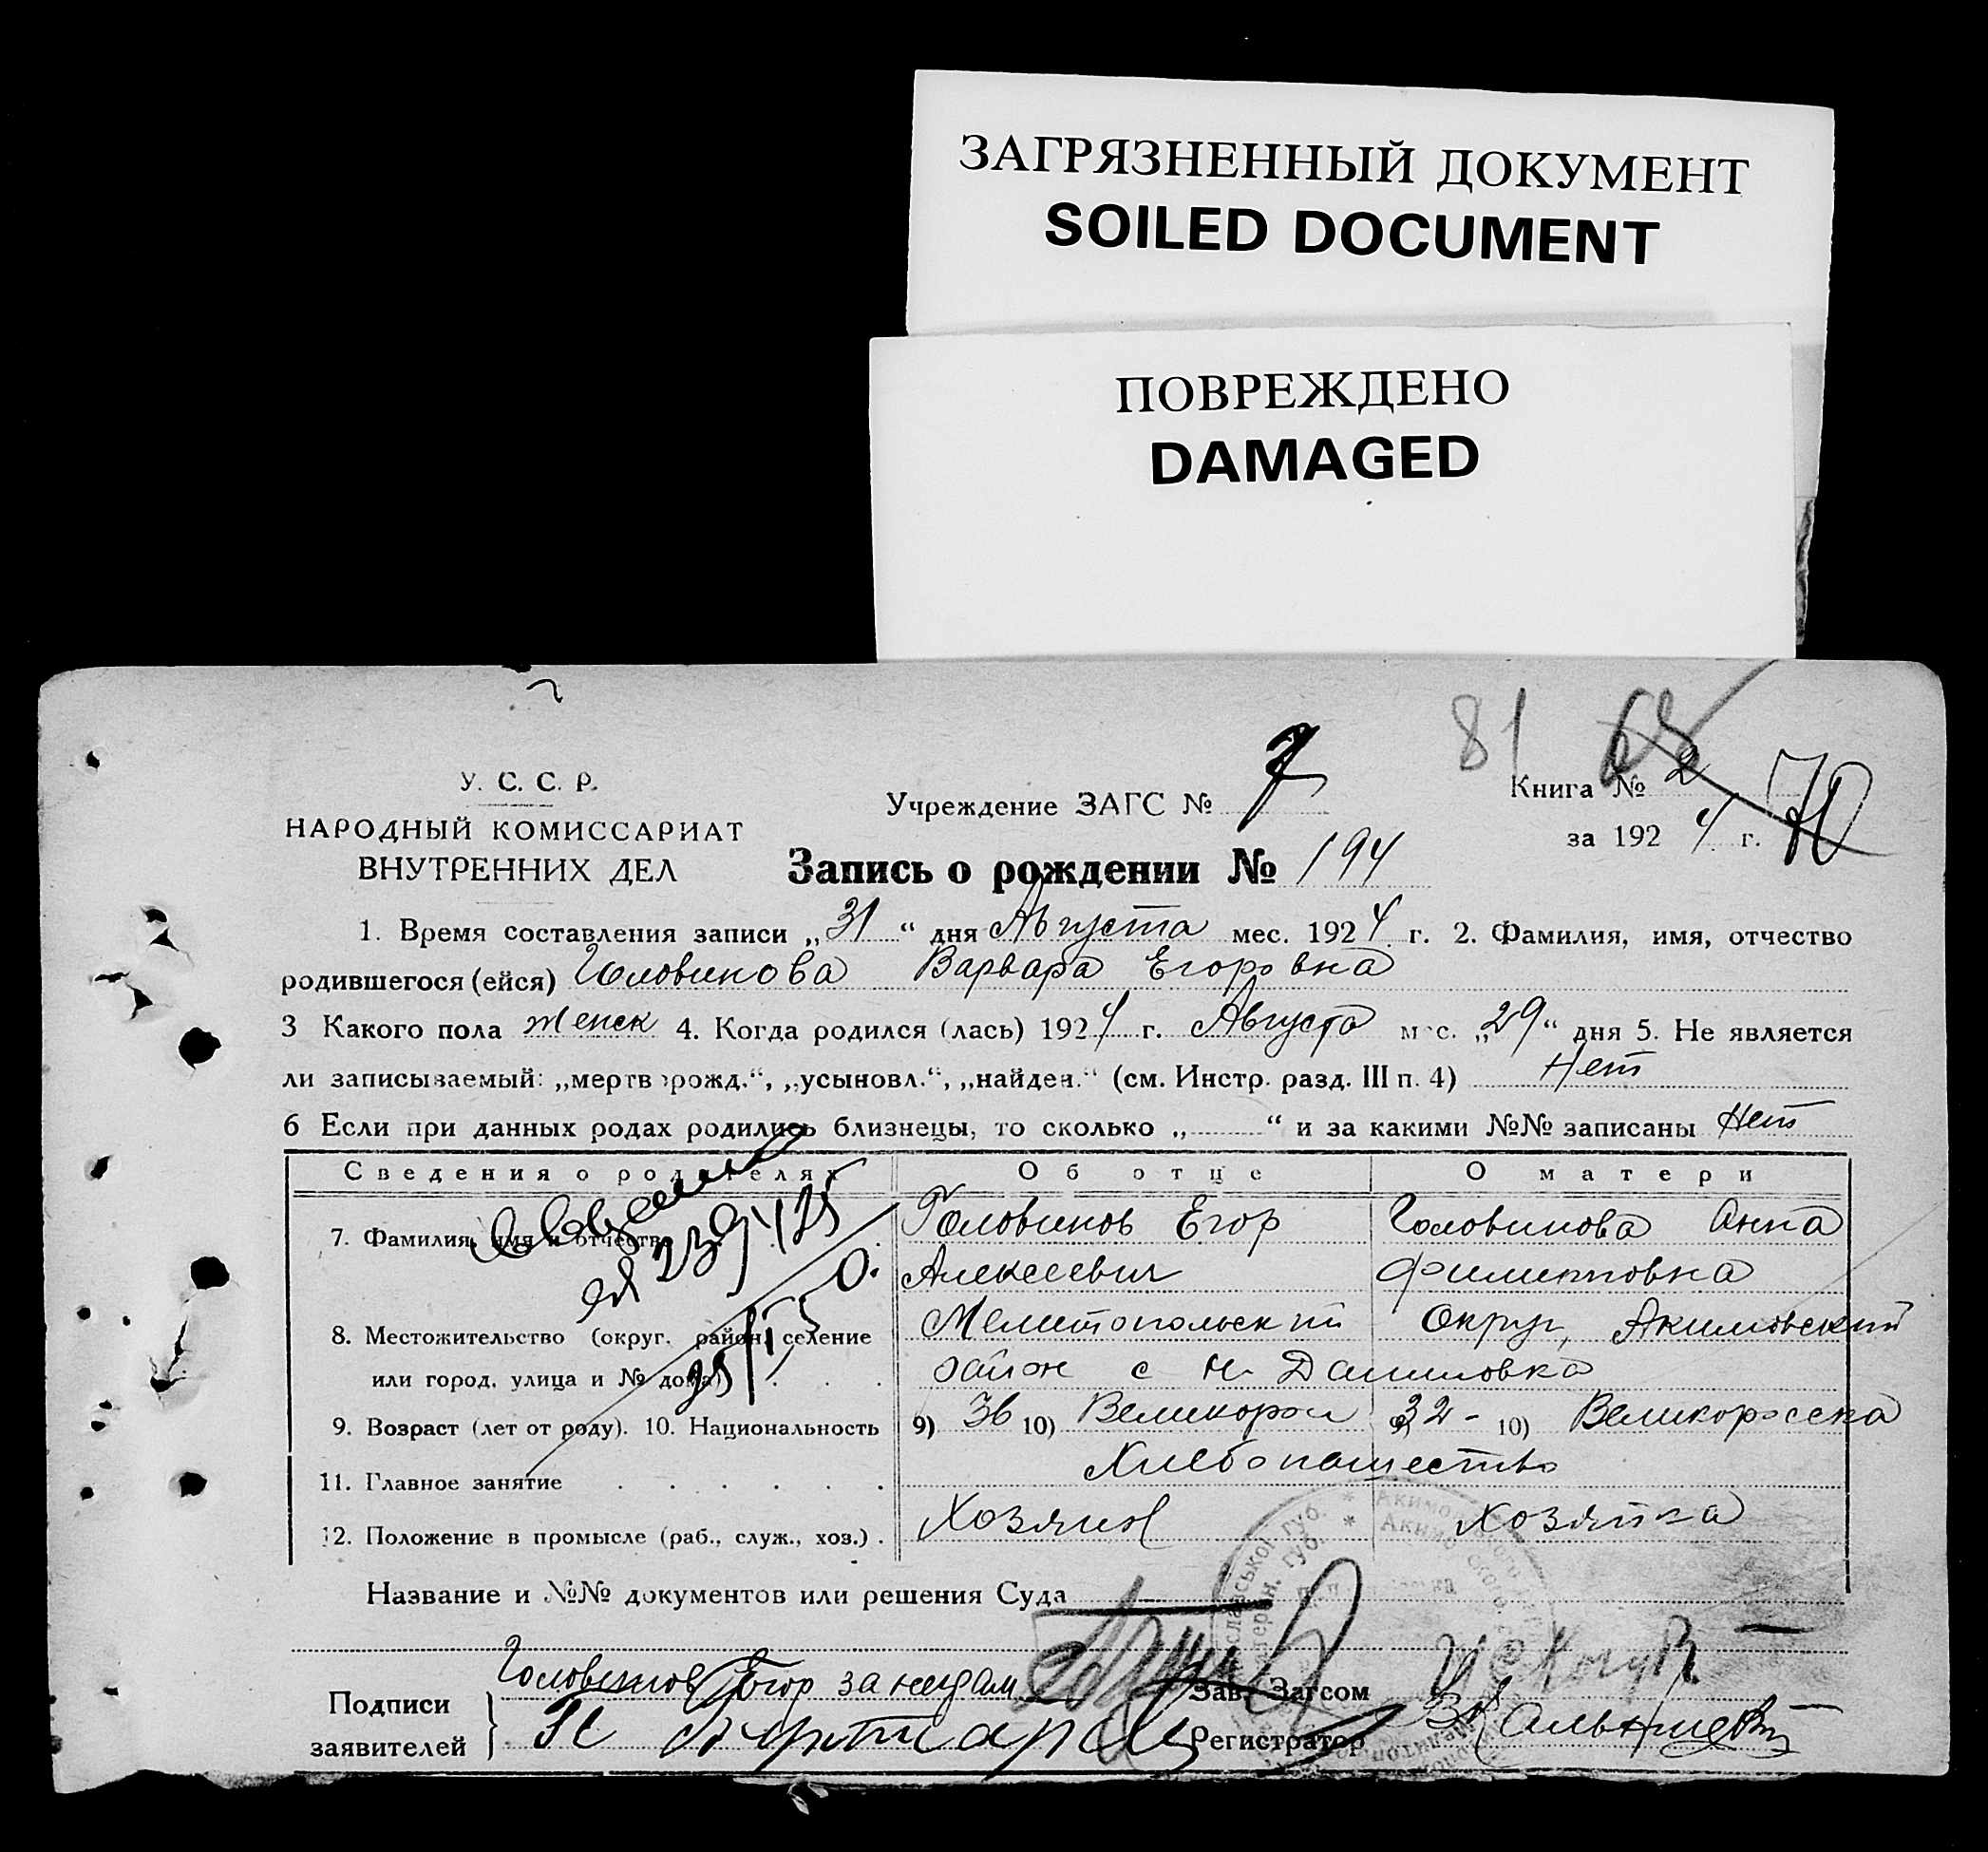 ЗАГРЯЗНЕННЫЙ ДОКУМЕНТ
SOILED DOCUMENT
ПОВРЕЖДЕНО
DAMAGED
81 68
У. С. С. Р.
НАРОДНЫЙ КОМИССАРИАТ
ВНУТРЕННИХ ДЕЛ
Учреждение ЗАГС № 7
Книга № 2
за 1924 г. 70
Запись о рождении № 194
1. Время составления записи „31“ дня Августа мес. 1924 г. 2. Фамилия, имя, отчество
родившегося (ейся) Головинова Варвара Егоровна
3 Какого пола женск 4. Когда родился (лась) 1924 г. Августа мес. „29“ дня 5. Не является
ли записываемый: „мертворожд.“, „усыновл.“, „найден.“ (см. Инстр. разд. III п. 4) Нет
6 Если при данных родах родились близнецы, то сколько „ “ и за какими №№ записаны Нет
Сведения о родителях Об отце О матери
7. Фамилия, имя и отчество Головинов Егор Головинова Анна
Алексеевич Филипповна
8. Местожительство (округ, район, селение Мелитопольский Округ, Акимовский
или город, улица и № дома) район с Н. Даниловка
9. Возраст (лет от роду). 10. Национальность 9) 36 10) Великоросс 9) 32 - 10) Великоросска
11. Главное занятие Хлебопашество
12. Положение в промысле (раб., служ., хоз.) Хозяин Хозяйка
Название и №№ документов или решения Суда
Головинов Егор за негдам
Подписи
заявителей
Зав. Загсом
Регистратор